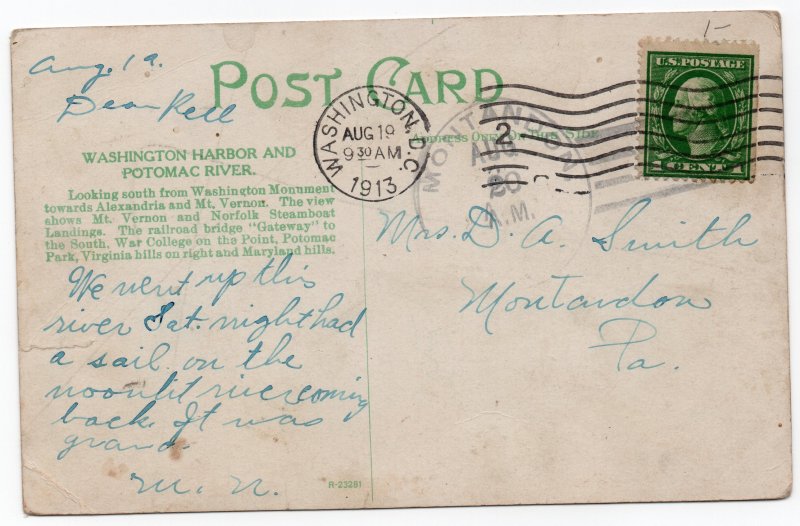 1-
Aug. 19.
POST CARD
Dear Nell
WASHINGTON, D.C.
AUG 19
9 30 AM
1913
2
MONTANDON
AUG
20
A.M.
U.S. POSTAGE
1 CENT 1
ADDRESS ONLY ON THIS SIDE
WASHINGTON HARBOR AND
POTOMAC RIVER.
Looking south from Washington Monument
towards Alexandria and Mt. Vernon. The view
shows Mt. Vernon and Norfolk Steamboat
Landings. The railroad bridge "Gateway" to
the South, War College on the Point, Potomac
Park, Virginia hills on right and Maryland hills.
We went up this
river Sat. night had
a sail on the
moonlit river coming
back. It was
grand.
M. N.
Mrs. D. A. Smith
Montandon
Pa.
R-23281